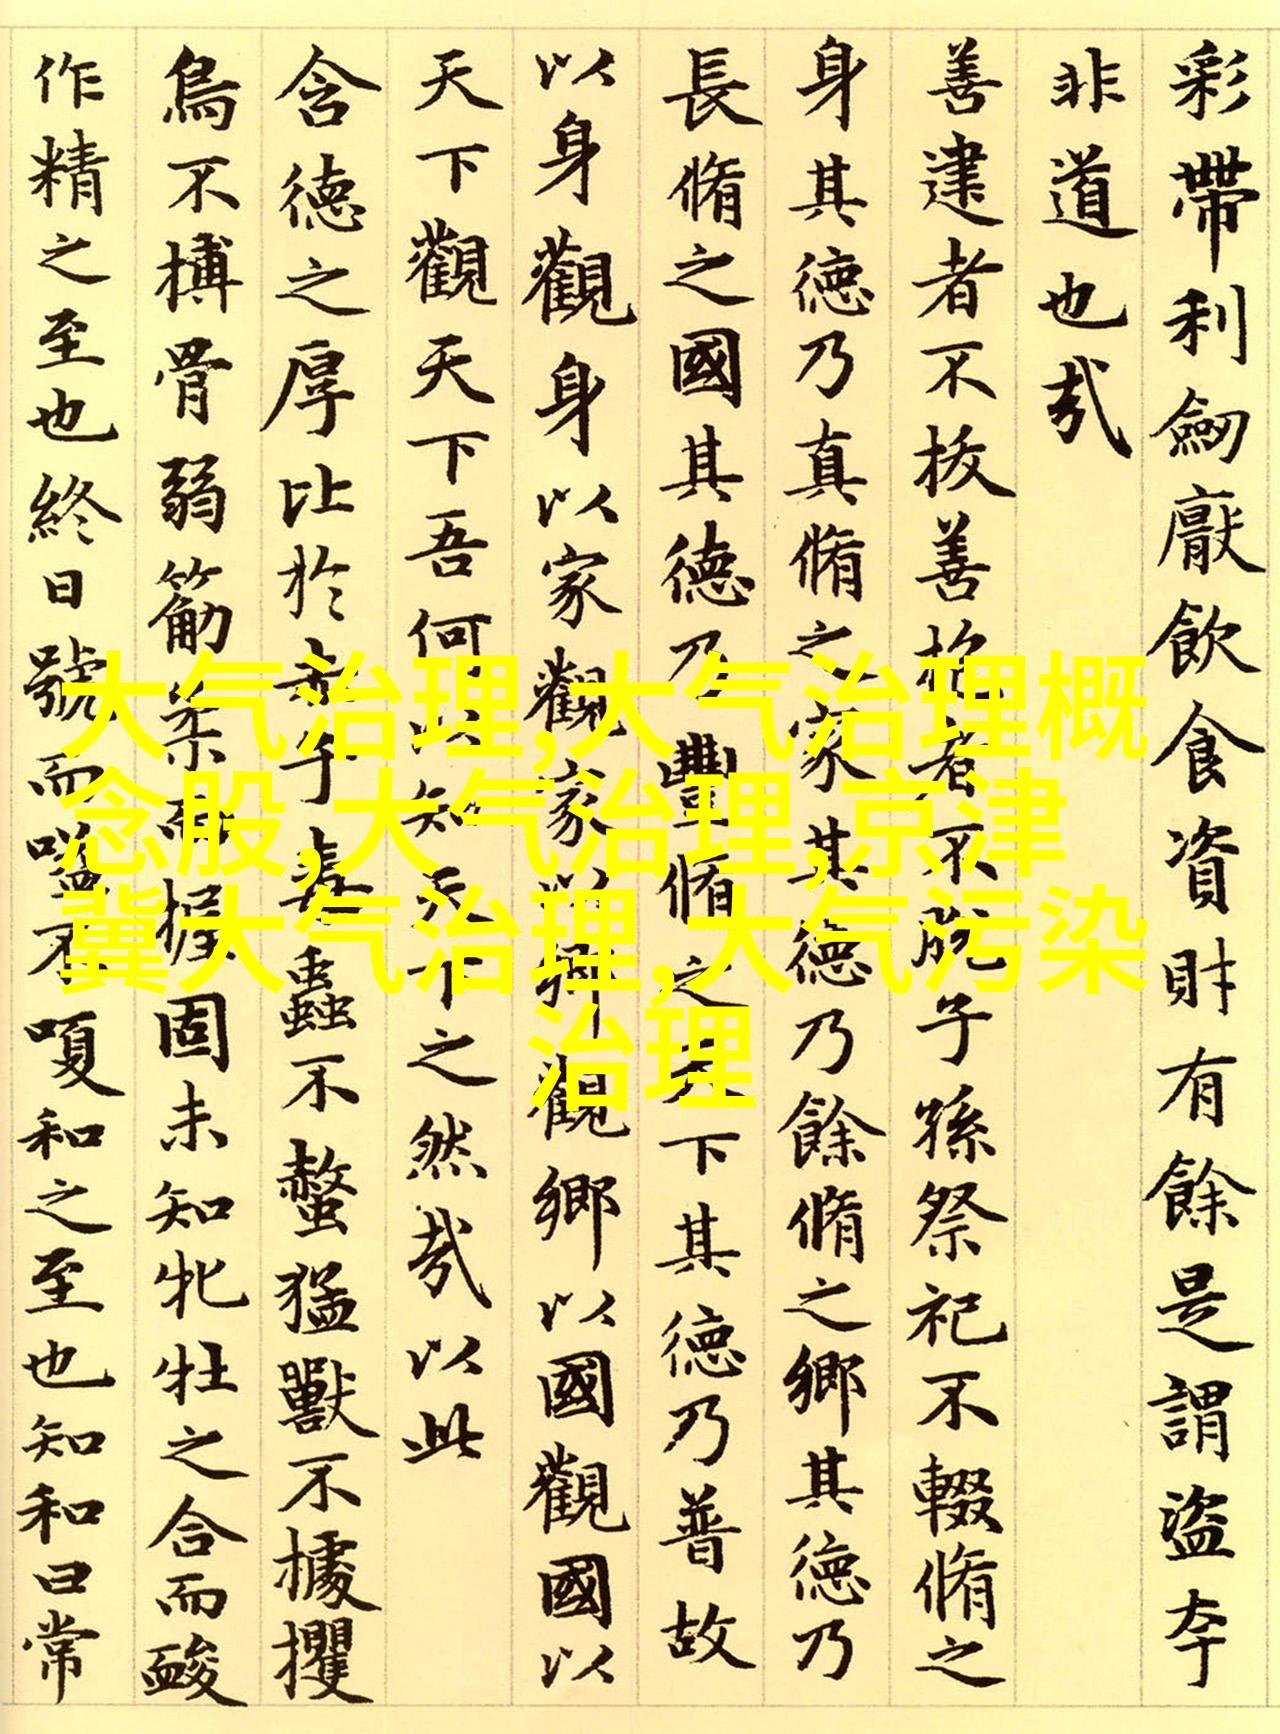 彩帶利劒厭飲食資財有餘是謂盜夸
非道也㢤
善建者不拔善抱者不脫子孫祭祀不輟脩之
身其德乃真脩之家其德乃餘脩之鄉其德乃
長脩之國其德乃豐脩之天下其德乃普故
以身觀身以家觀家以鄉觀鄉以國觀國以
天下觀天下吾何以知天下之然㢤以此
含德之厚比於赤子毒蟲不螫猛獸不據攫
鳥不搏骨弱筋柔而握固未知牝牡之合而酸
作精之至也終日號而嗌不嗄和之至也知和曰常
大气治理,大气治理概
念股,大气治理,京津
冀大气治理,大气污染
治理